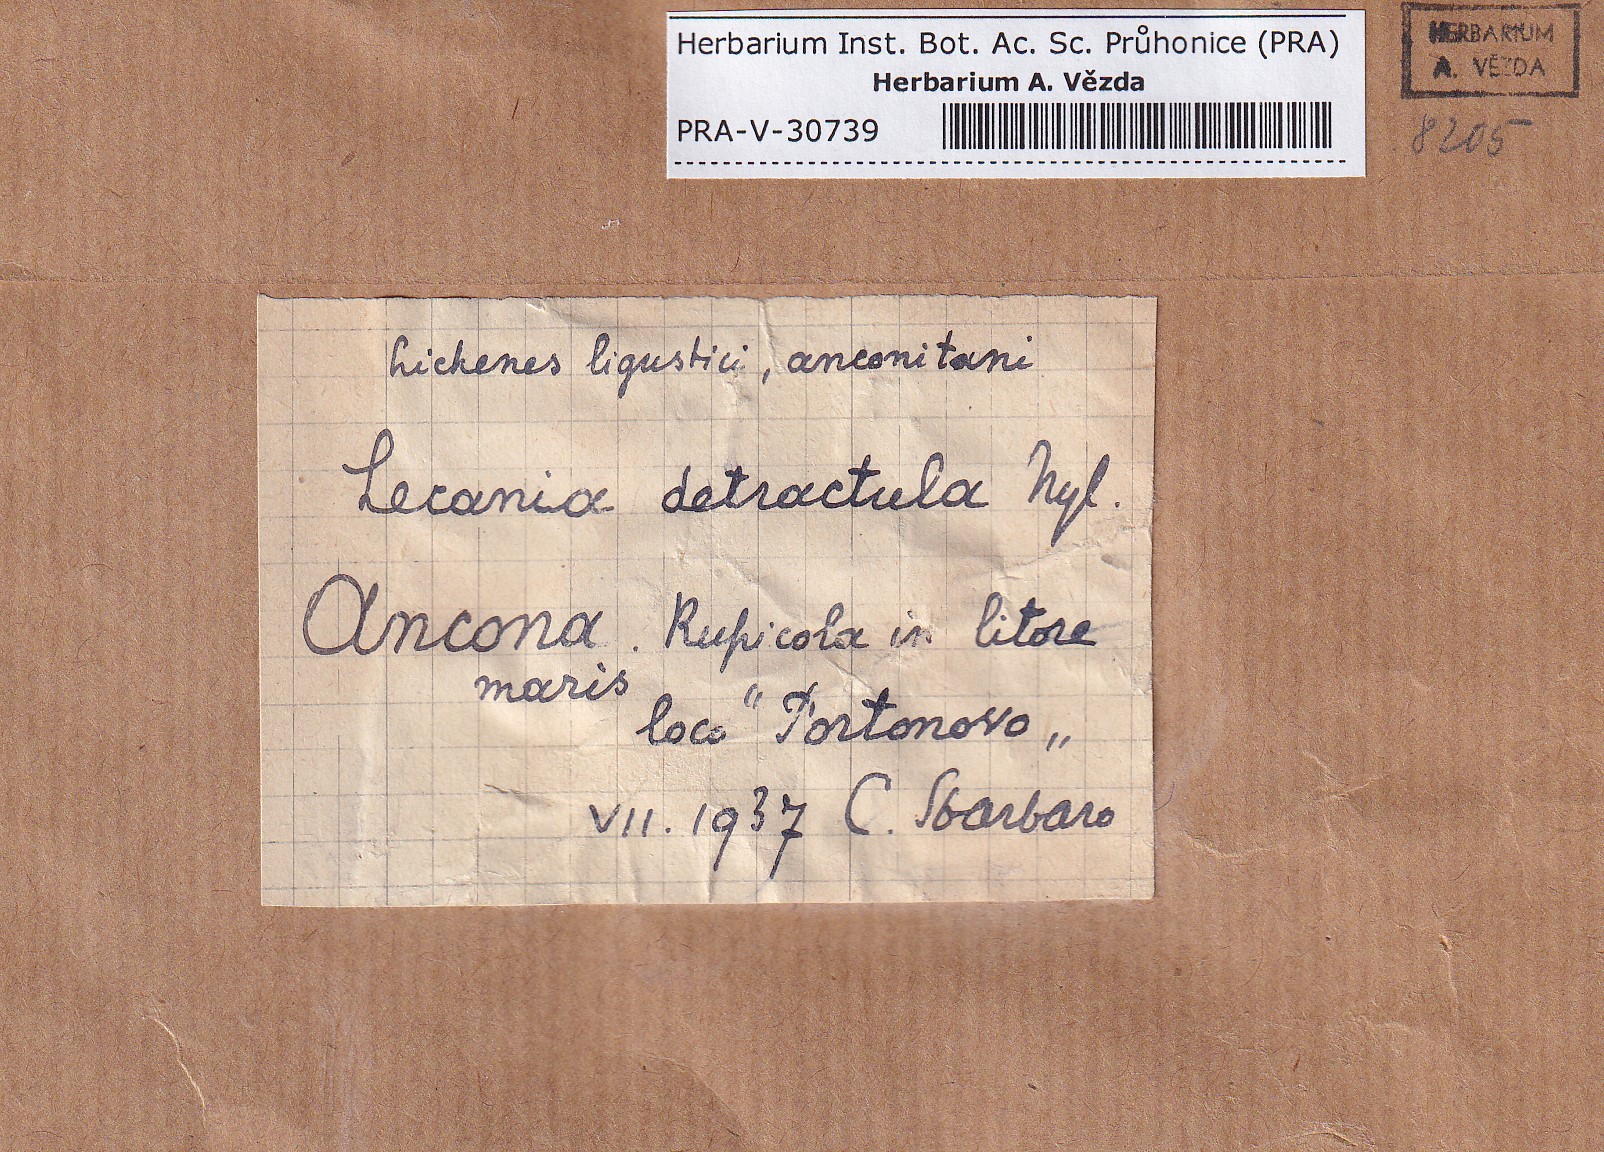 Herbarium Inst. Bot. Ac. Sc. Průhonice (PRA)
Herbarium A. Vězda
PRA-V-30739
HERBARIUM
A. VĚZDA
8205
Lichenes ligustici, anconitani
Lecania detractula Nyl.
Ancona. Rupicola in litore
maris
loco "Portonovo„
VII. 1937 C. Sbarbaro